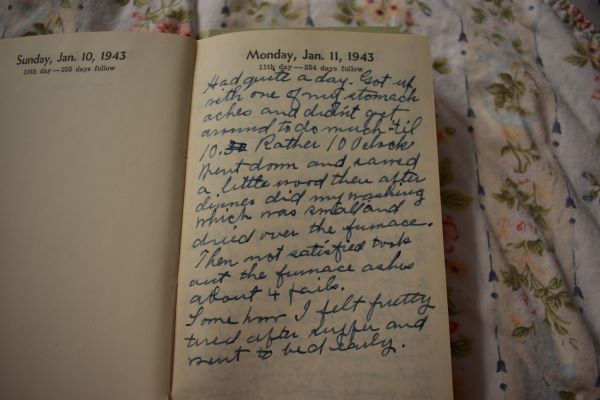 Sunday, Jan. 10, 1943
10th day—355 days follow
Monday, Jan. 11, 1943
11th day—354 days follow
Had quite a day. Got up
with one of my stomach
aches and didn't get
around to do much 'til
10. Rather 10 O'clock
Went down and sawed
a little wood then after
dinner did my washing
which was small and
dried over the furnace.
Then not satisfied took
out the furnace ashes
about 4 pails.
Some how I felt pretty
tired after supper and
went to bed early.